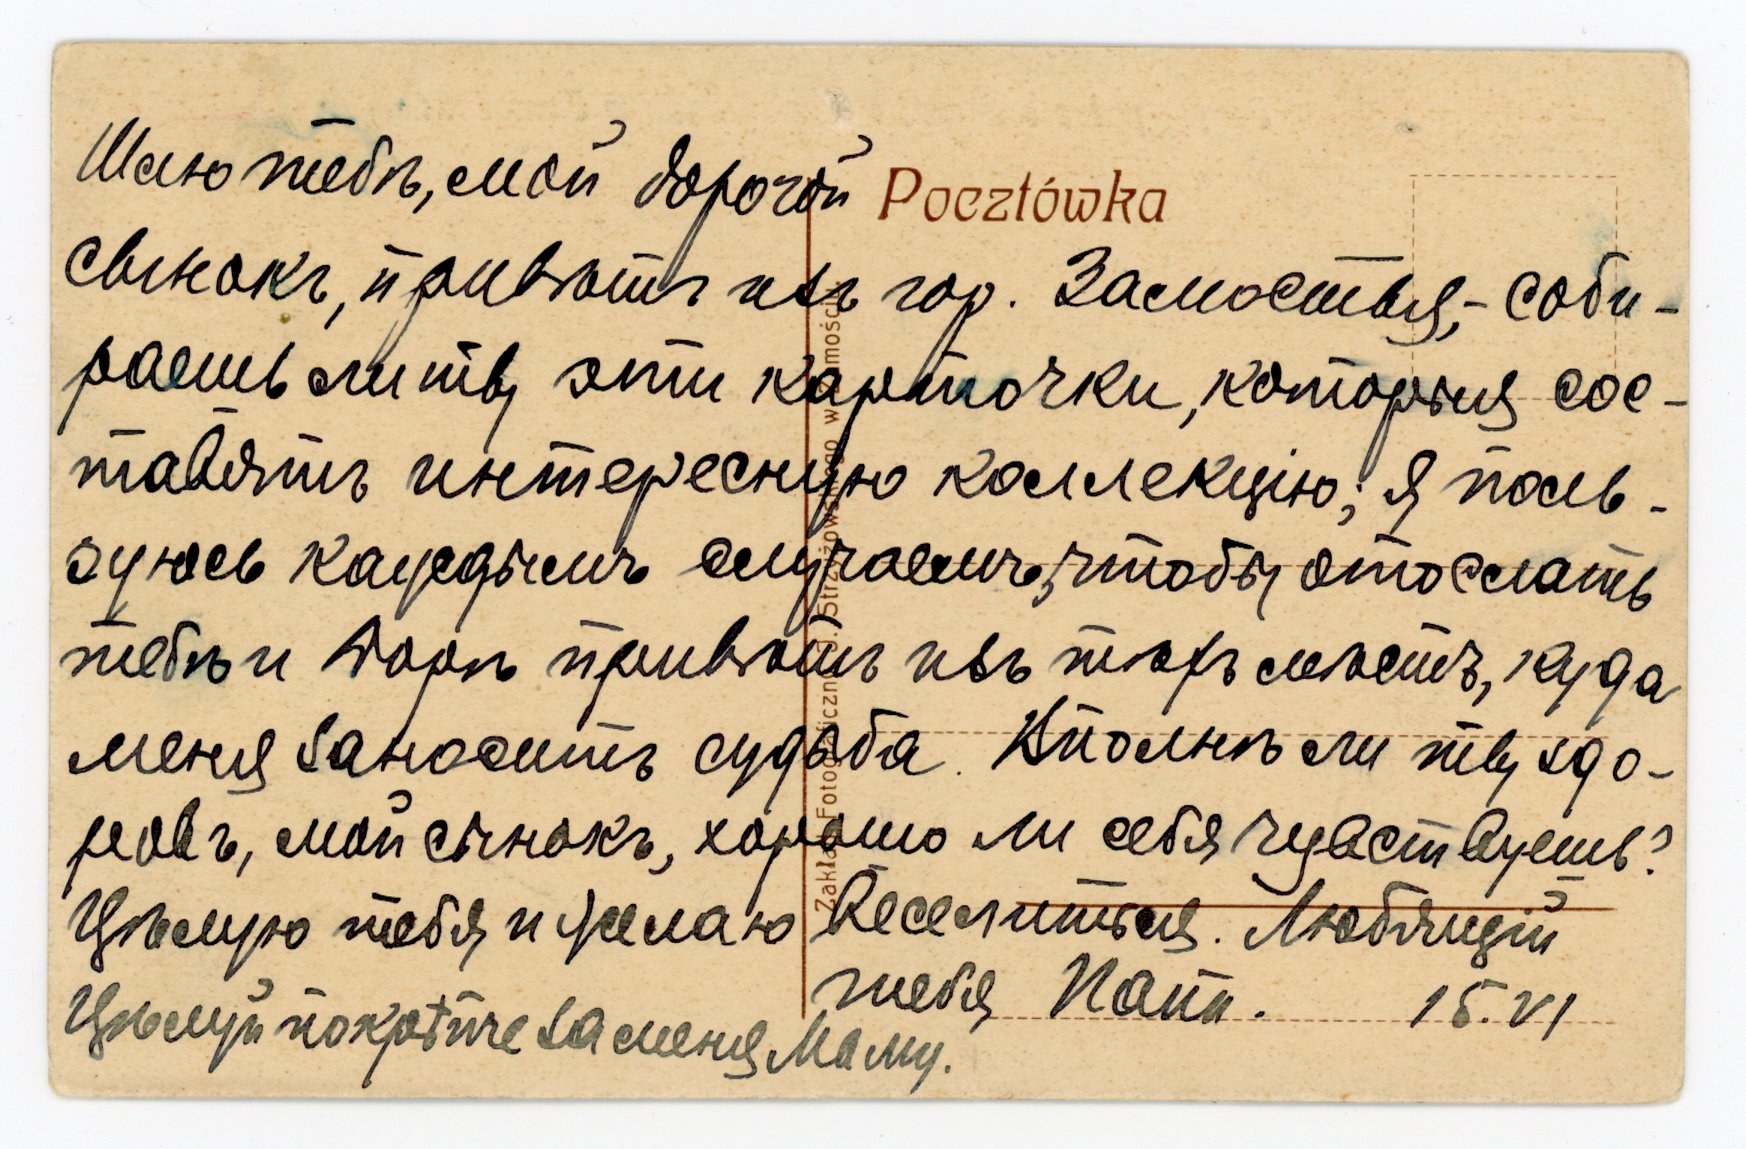 Шлю тебѣ, мой дорогой
Pocztówka
сынокъ, привѣтъ изъ гор. Замостья,- соби-
раешь ли ты эти карточки, которыя сос-
тавятъ интересную коллекцію; я поль-
зуюсь каждымъ случаемъ, чтобы отослать
тебѣ и Дорѣ привѣтъ изъ тѣхъ мѣстъ, куда
меня заноситъ судьба. Вполнѣ ли ты здо-
ровъ, мой сынокъ, хорошо ли себя чувствуешь?
Цѣлую тебя и желаю веселиться. Любящій
тебя Папа. 15.VI
Цѣлуй покрѣпче за меня Маму.
Zakład Fotograficzny J. Strzyżowskiego w Zamościu